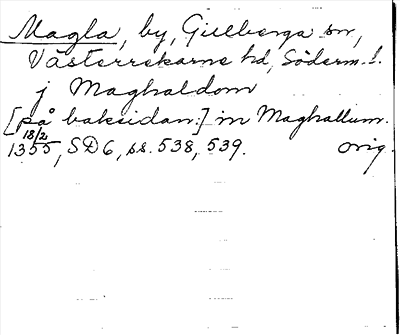 Magla, by, Gillberga sn,
Västerrekarne hd, Söderm. l.
j Maghaldom
[på baksidan:] in Maghallum.
18/2 1355, SD6, ss. 538, 539. orig.